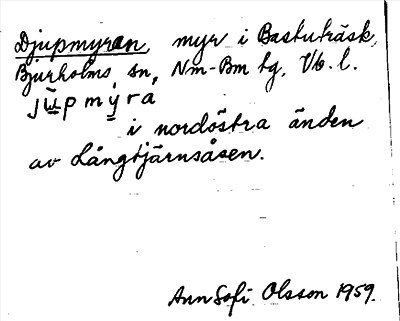 Djupmyran, myr i Bastuträsk,
Bjurholms sn, Nm-Bm tg, Vb. l.
jup myra
i nordöstra änden
av Långtjärnsåsen.
Ann Sofi Olsson 1959.